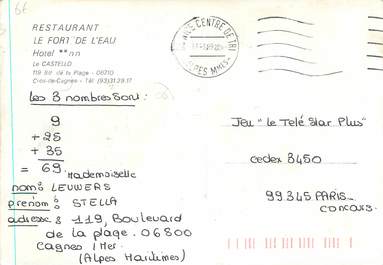 RESTAURANT
LE FORT DE L'EAU
Hotel **nn
Le CASTELLO
119 Bd de la Plage - 06710
Cros-de-Cagnes - Tél (93)31.29.17
CENTRE DE TRI
ALPES MMES
Les 3 nombres sont :
9
+ 25
+ 35
= 69.
Mademoiselle
nom : LEUWERS
prénom : STELLA
adresse : 119, Boulevard
de la plage. 06800
Cagnes / Mer
(Alpes Maritimes)
Jeu "Le Télé Star Plus"
cedex 3450
99345 PARIS
CONCOURS.